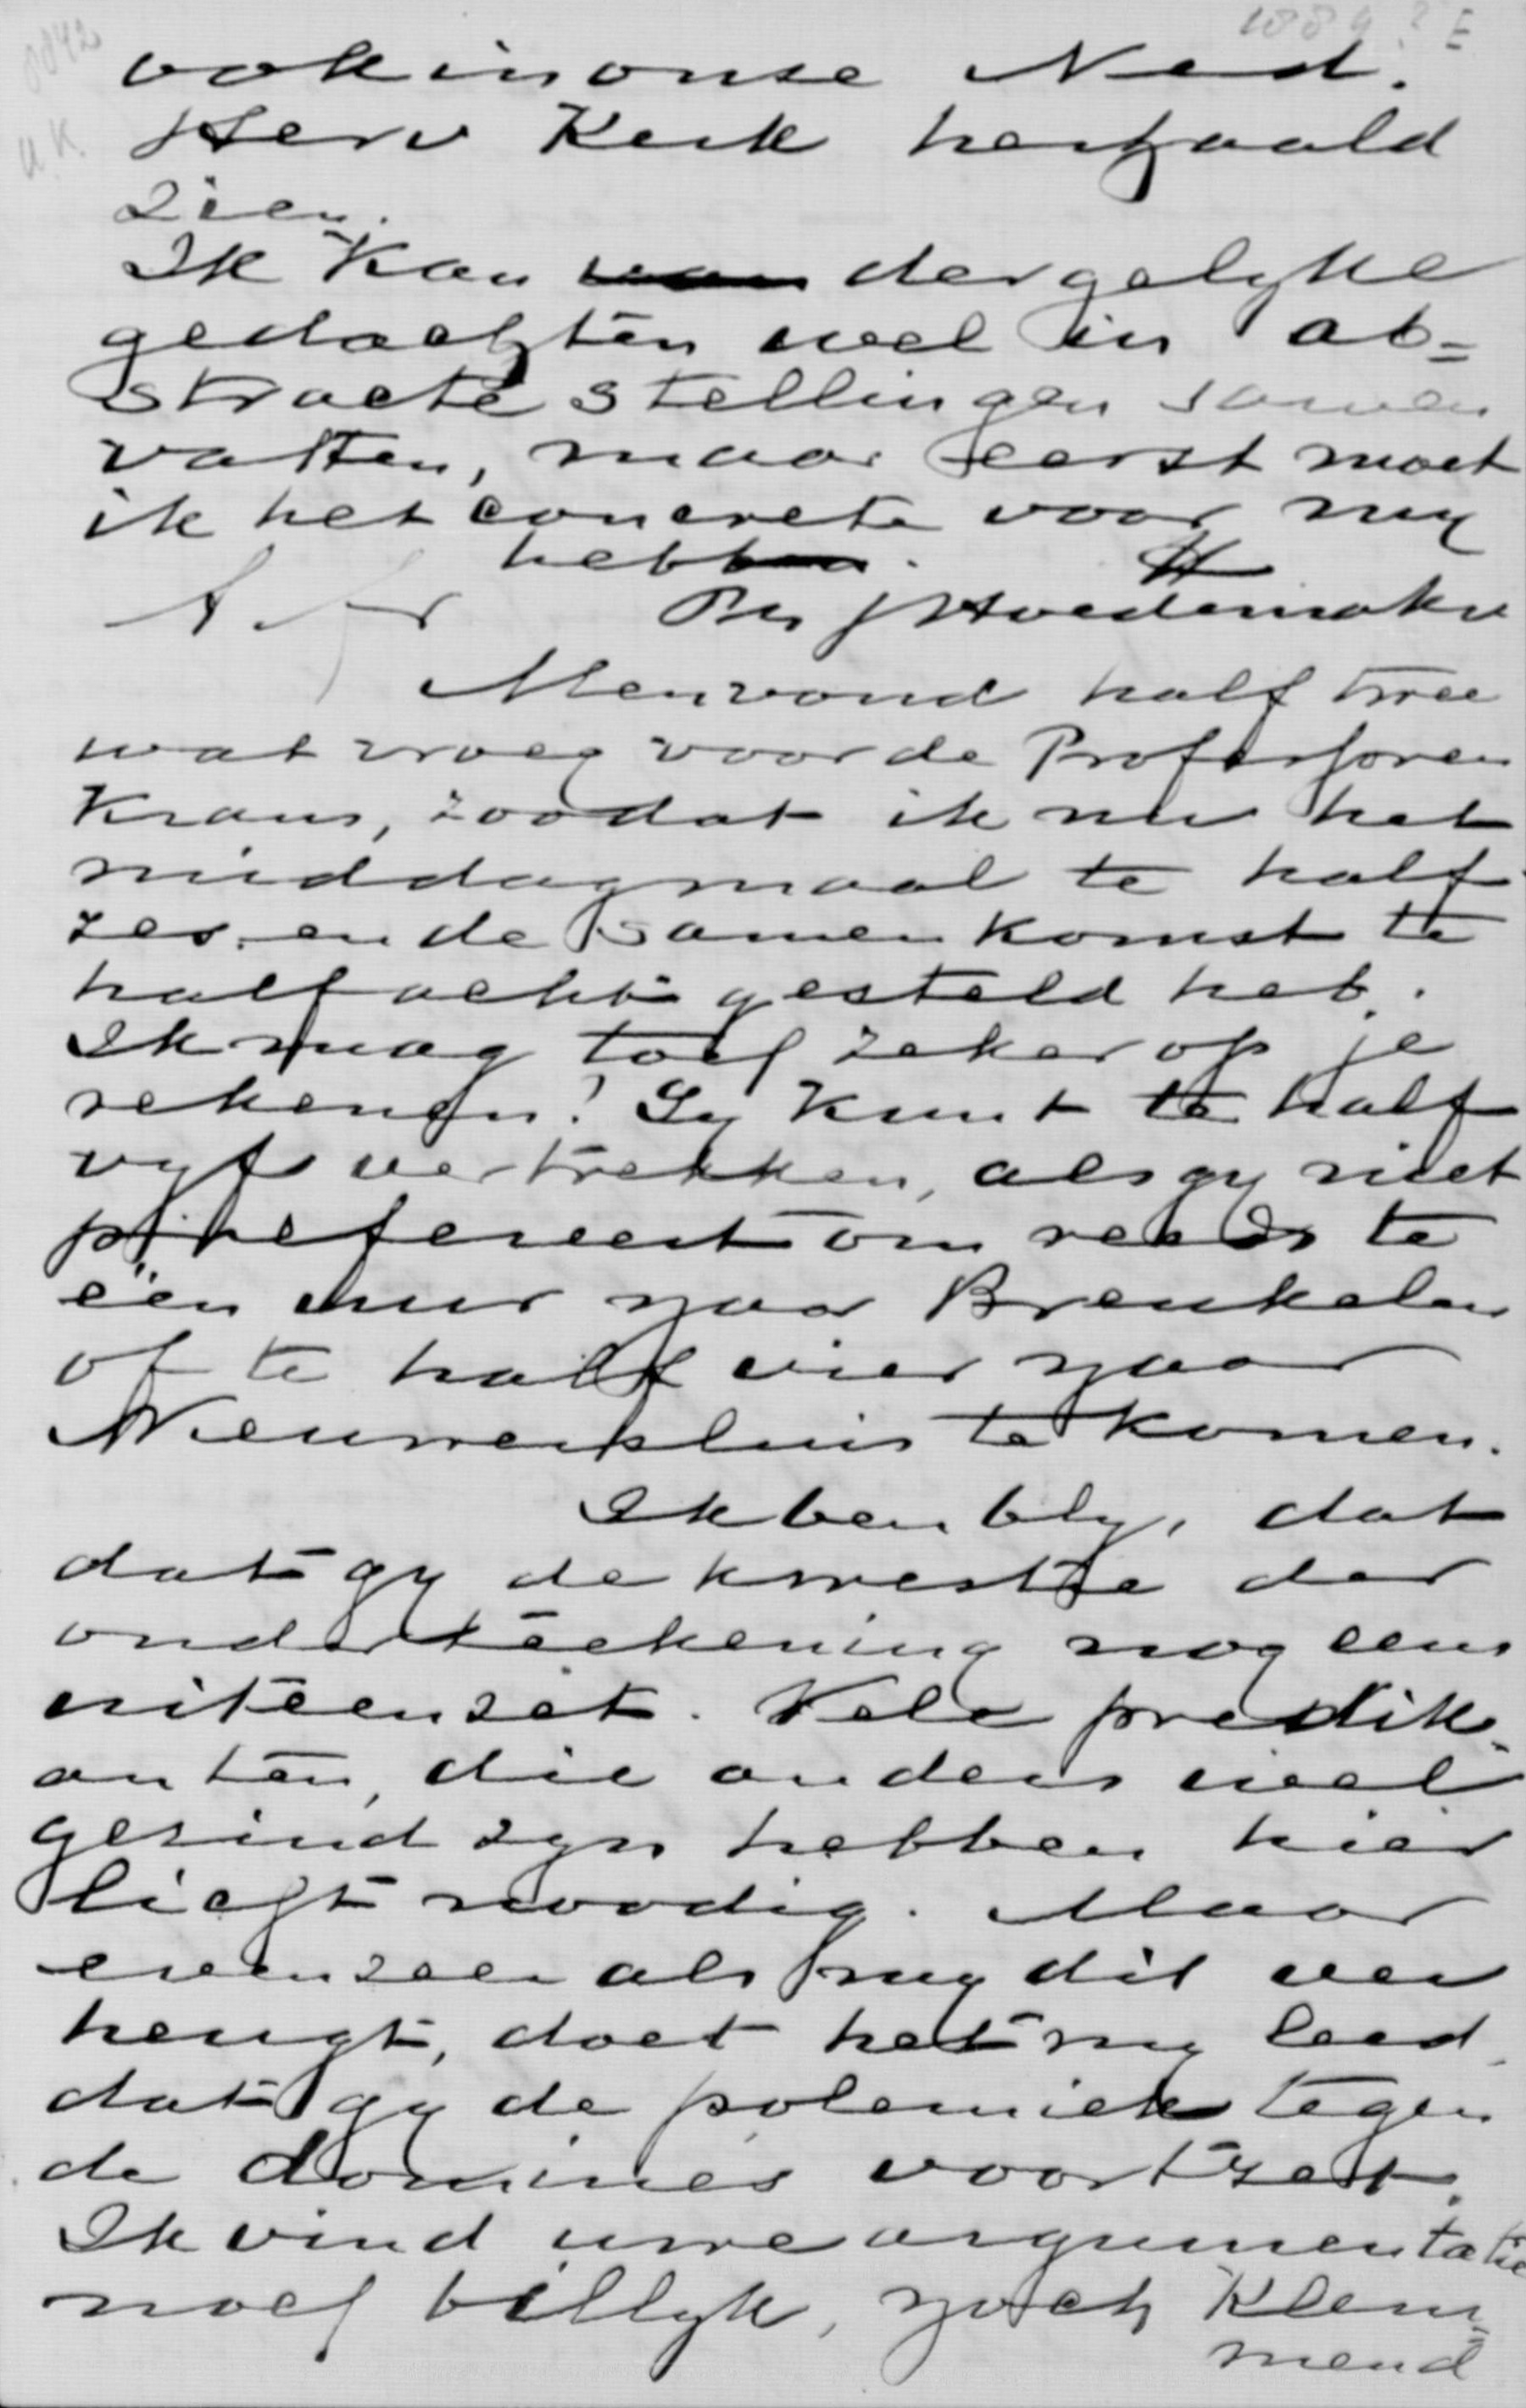 1884? E
0042
A.K.
ook in onze Ned.
Herv Kerk herhaald
zien.
Ik kan dergelyke
gedachten wel in ab=
stracte stellingen samen
vatten, maar eerst moet
ik het concrete voor my
hebben. tt
Ph J Hoedemaker
Men vond half twee
wat vroeg voor de Professoren
Krans, zoodat ik nu het
middagmaal te half
zes en de samenkomst te
half acht gesteld heb.
Ik mag toch zeker op je
rekenen? Gy kunt te half
vyf vertrekken, als gy niet
prefereert om reeds te
één uur naar Breukelen
of te half vier naar
Nieuwersluis te komen.
Ik ben bly, dat
dat gy de kwestie der
onderteekening nog eens
uiteenzet. Vele predik=
anten, die anders wel
gezind zyn hebben hier
licht noodig. Maar
evenzeer als my dit ver
heugt, doet het my leed,
dat gy de polemiek tegen
de dominés voortzet.
Ik vind uwe argumentatie
noch billyk, noch klem=
mend